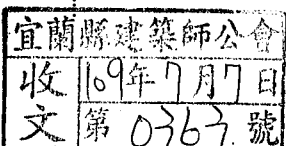 宜蘭縣建築師公會
收文
109年7月7日
第0363號